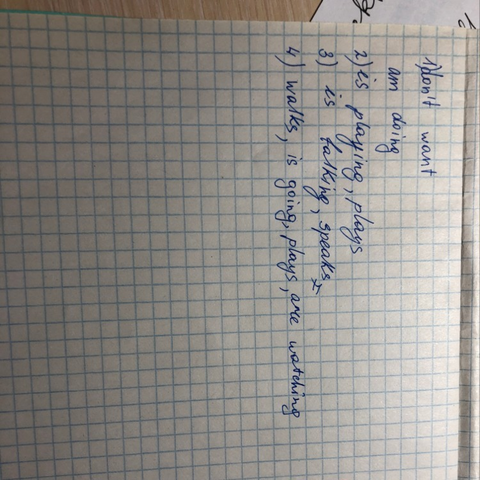 1) don't want
am doing
2) is playing, plays
3) is talking, speaks
4) walks, is going, plays, are watching